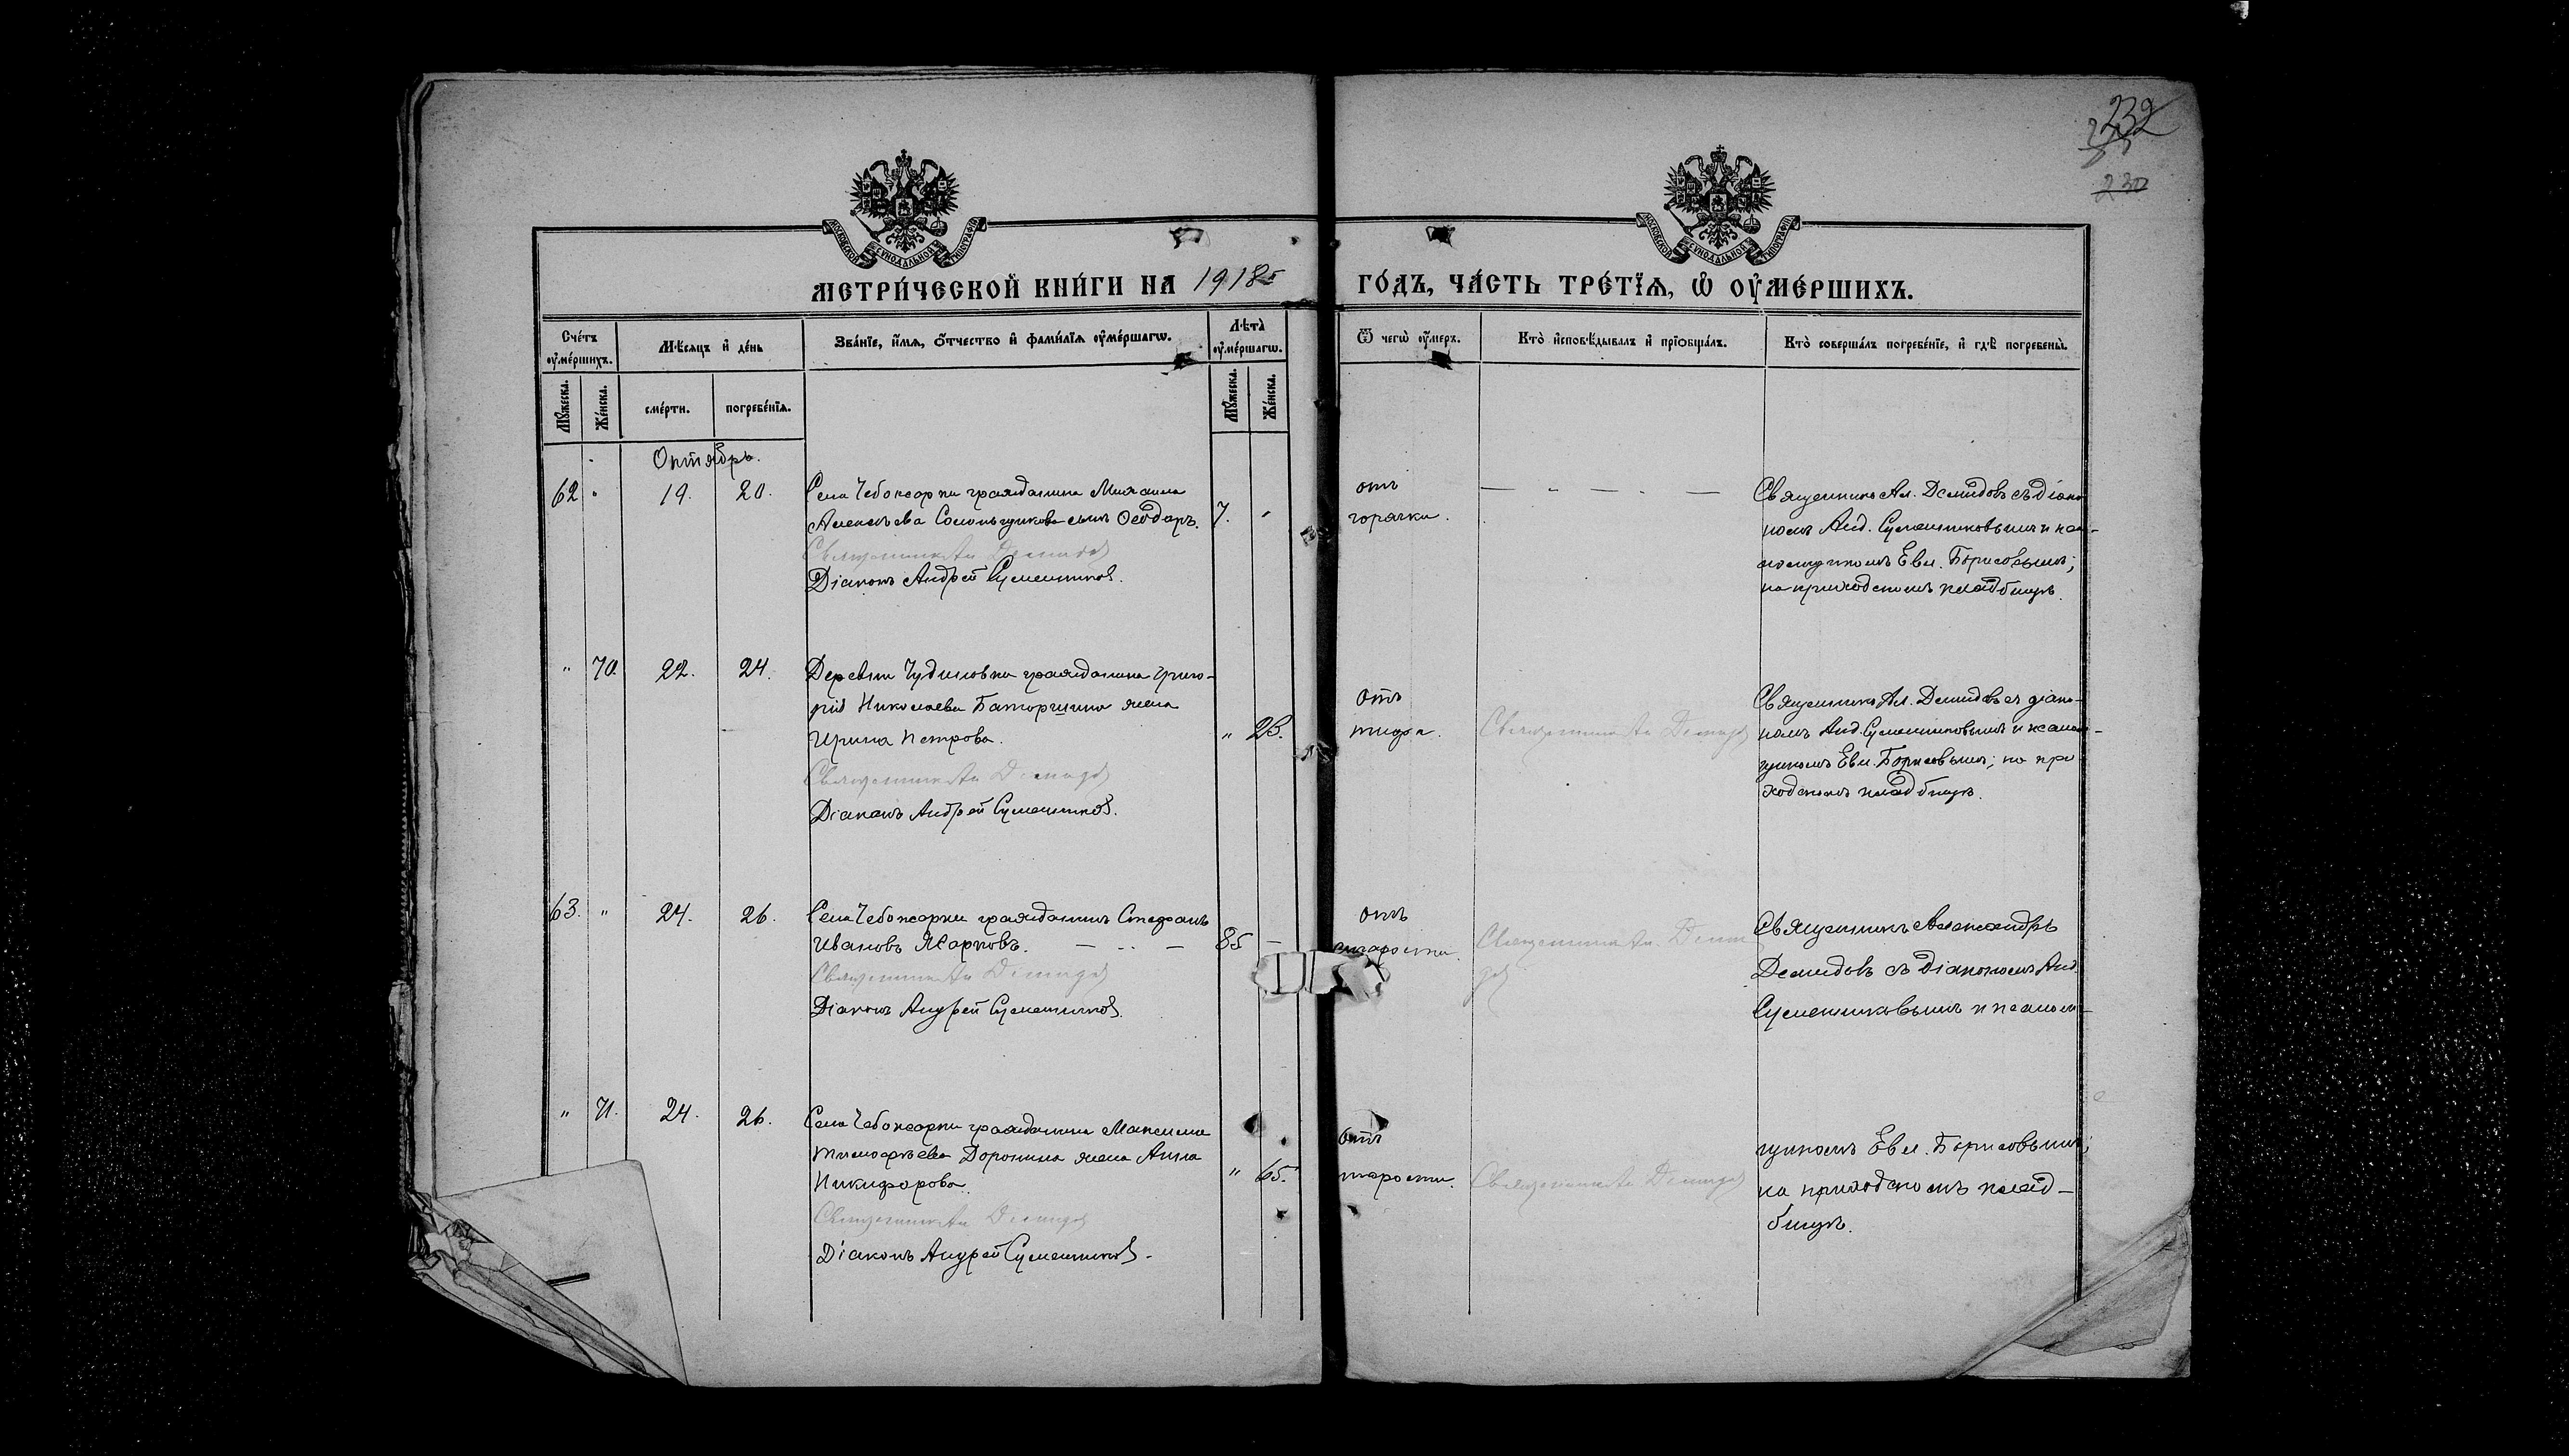 232
230
МОСКОВСКОЙ СѴНОДАЛЬНОЙ ТИПОГРАФІИ
МОСКОВСКОЙ СѴНОДАЛЬНОЙ ТИПОГРАФІИ
МЕТРИ́ЧЕСКОЙ КНИ́ГИ НА 1918
ГО́ДЪ, ЧА́СТЬ ТРЕ́ТЇѦ, Ѽ ОУ҆МЕ́РШИХЪ.
Сче́тъ оу҆ме́ршихъ.
Мѣ́сяцъ и҆ де́нь
Зва́нїе, и҆́мѧ, о҆́тчество и҆ фами́лїѧ оу҆ме́ршагѡ.
Лѣ́та̀ оу҆ме́ршагѡ.
Ѿ чегѡ̀ оу҆́меръ.
Кто̀ и҆сповѣ́дывалъ и҆ прїѡбща́лъ.
Кто̀ соверша́лъ погребе́нїе, и҆ гдѣ̀ погребены̀.
Мꙋ́жеска.
Же́нска.
сме́рти.
погребе́нїѧ.
Мꙋ́жеска.
Же́нска.
Октябрь.
62 " 19. 20. Села Чебоксарки гражданина Михаила
Алексѣева Сыѳодоръ. 7. "
Священникъ Ал Демидов
Діаконъ Андрей Сумешников.
отъ
горячки.
Священникъ Ал. Демидовъ съ діако
номъ Анд. Сумешниковымъ и пса-
ломщикомъ Евл. Борисовымъ;
на приходскомъ кладбищѣ.
" 70. 22. 24. Деревни Чудиловки гражданина Григо-
рія Николаева Баторшина жена
Ирина Петрова. " 26.
Священникъ Ал Демидов
Діаконъ Андрей Сумешников.
Отъ
тифа.
Священникъ Ал Демидов
Священникъ Ал. Демидовъ съ діако-
номъ Анд. Сумешниковымъ и псалом-
щикомъ Евл. Борисовымъ; на при
ходскомъ кладбищѣ.
63. " 24. 26. Села Чебоксарки гражданинъ Стефанъ
Ивановъ Жарковъ. 85 —
Священникъ Ал Демидов
Діаконъ Андрей Сумешников.
отъ
старости.
Священникъ Ал Деми
дов
Священникъ Александръ
Демидовъ съ діакономъ Анд.
Сумешниковымъ и псалом-
" 71. 24. 26. Села Чебоксарки гражданина Максима
Тимофѣева Доронина жена Анна
Никифорова. " 65.
Священникъ Ал Демидов
Діаконъ Андрей Сумешников.
Отъ
старости.
Священникъ Ал Демидов
щикомъ Евл. Борисовымъ;
на приходскомъ клад-
бищѣ.